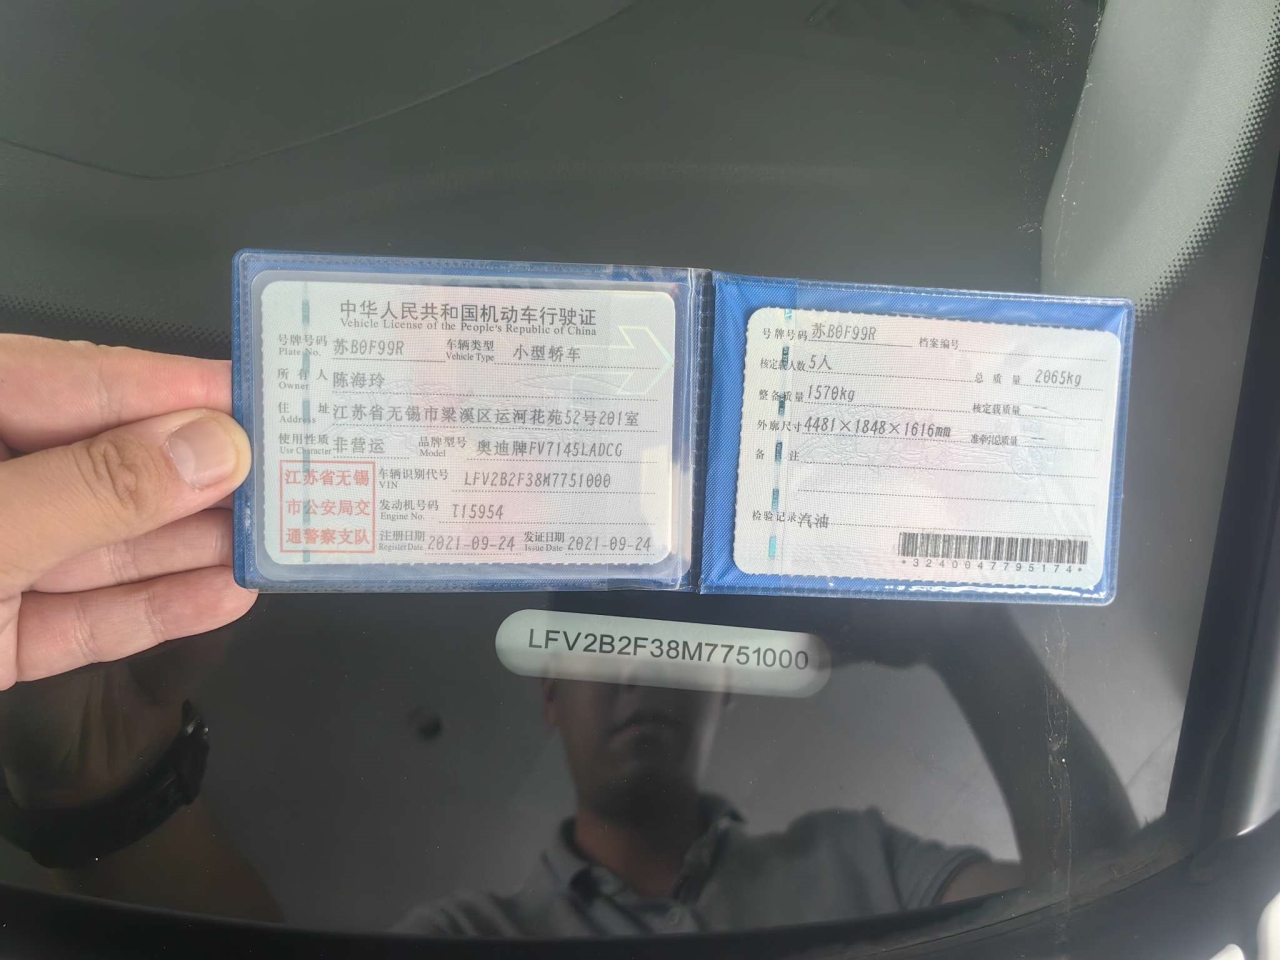 中华人民共和国机动车行驶证
Vehicle License of the People's Republic of China
号牌号码 苏B0F99R 车辆类型 小型轿车
Plate No. Vehicle Type
所有人 陈海玲
Owner
住址 江苏省无锡市梁溪区运河花苑52号201室
Address
使用性质 非营运 品牌型号 奥迪牌FV7145LADCG
Use Character Model
江苏省无锡
市公安局交
通警察支队
车辆识别代号 LFV2B2F38M7751000
VIN
发动机号码 T15954
Engine No.
注册日期 2021-09-24 发证日期 2021-09-24
Register Date Issue Date
号牌号码 苏B0F99R 档案编号
核定载人数 5人 总质量 2065kg
整备质量 1570kg 核定载质量 --
外廓尺寸 4481×1848×1616mm 准牵引总质量 --
备注
检验记录 汽油
*3240047795174*
LFV2B2F38M7751000